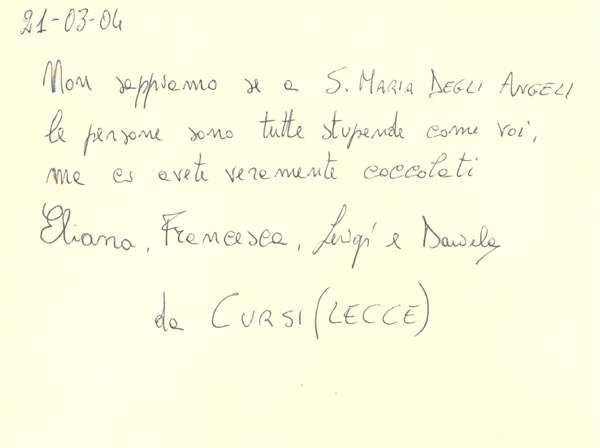 21-03-04
Non sappiamo se a S. MARIA DEGLI ANGELI
le persone sono tutte stupende come voi,
ma ci avete veramente coccolati
Eliana, Francesca, Luigi e Daniela
da CURSI (LECCE)